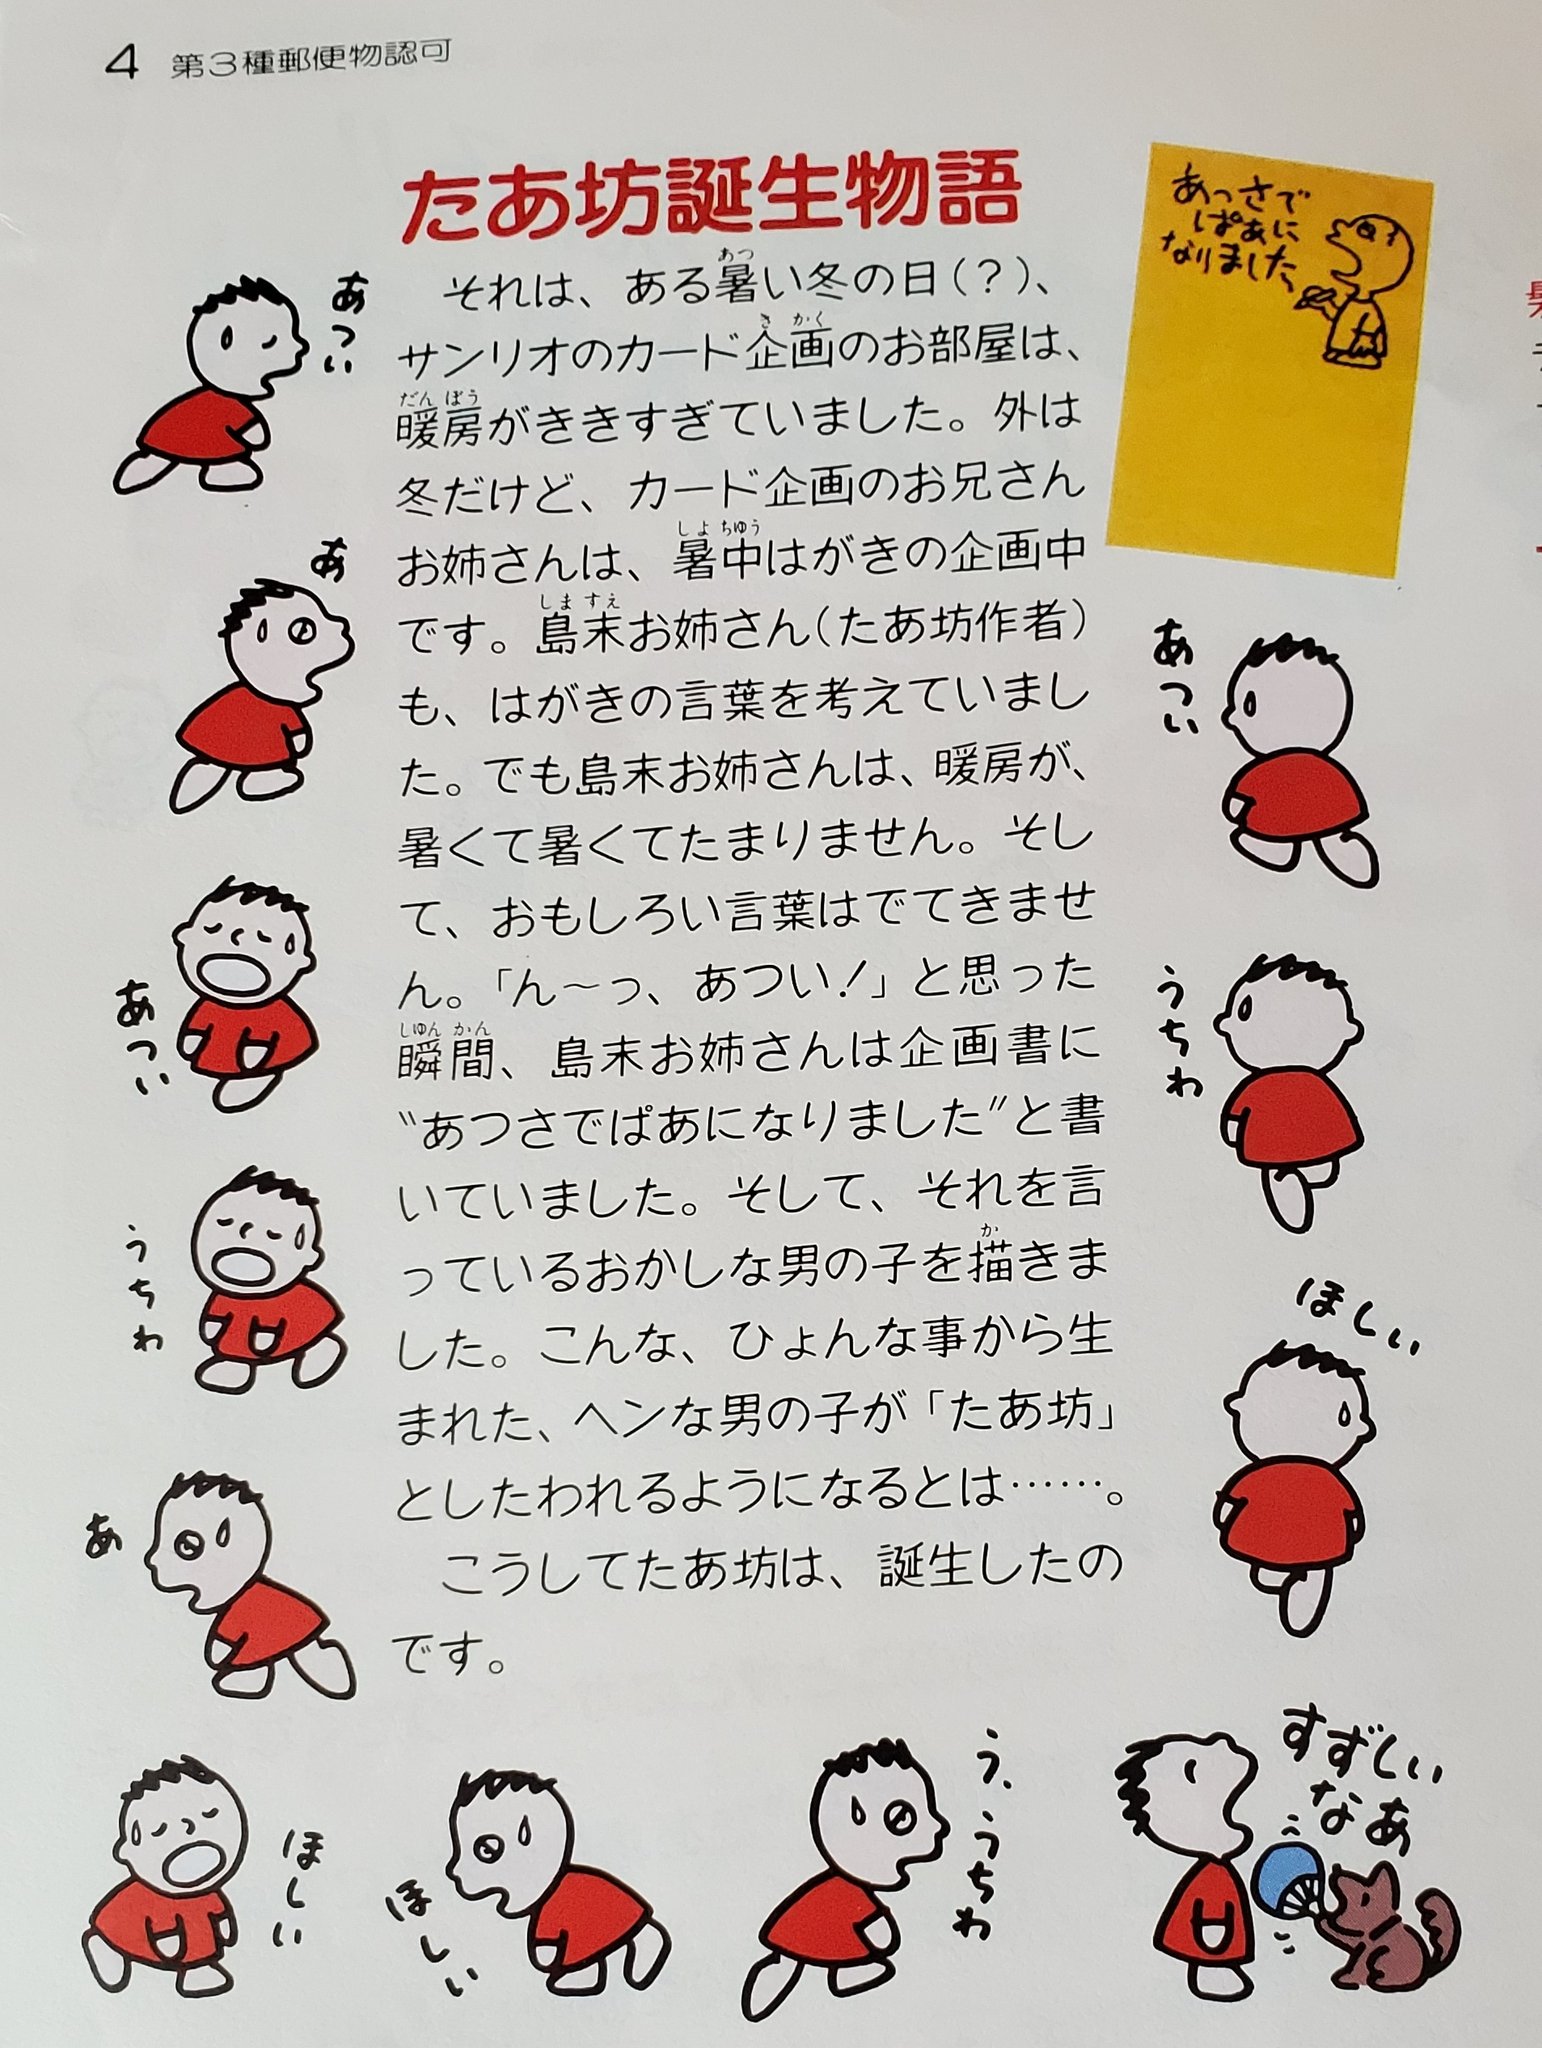 4 第3種郵便物認可
たあ坊誕生物語
あっさで
ぱあに
なりました
それは、ある暑い冬の日(?)、
サンリオのカード企画のお部屋は、
暖房がききすぎていました。外は
冬だけど、カード企画のお兄さん
お姉さんは、暑中はがきの企画中
です。島末お姉さん(たあ坊作者)
も、はがきの言葉を考えていまし
た。でも島末お姉さんは、暖房が、
暑くて暑くてたまりません。そし
て、おもしろい言葉はでてきませ
ん。「ん〜っ、あつい!」と思った
瞬間、島末お姉さんは企画書に
〝あつさでぱあになりました〞と書
いていました。そして、それを言
っているおかしな男の子を描きま
した。こんな、ひょんな事から生
まれた、ヘンな男の子が「たあ坊」
としたわれるようになるとは……。
こうしてたあ坊は、誕生したの
です。
あつい
あ
あつい
うちわ
あ
ほしい
ほしい
う、うちわ
あつい
うちわ
ほしい
すずしい
なあ